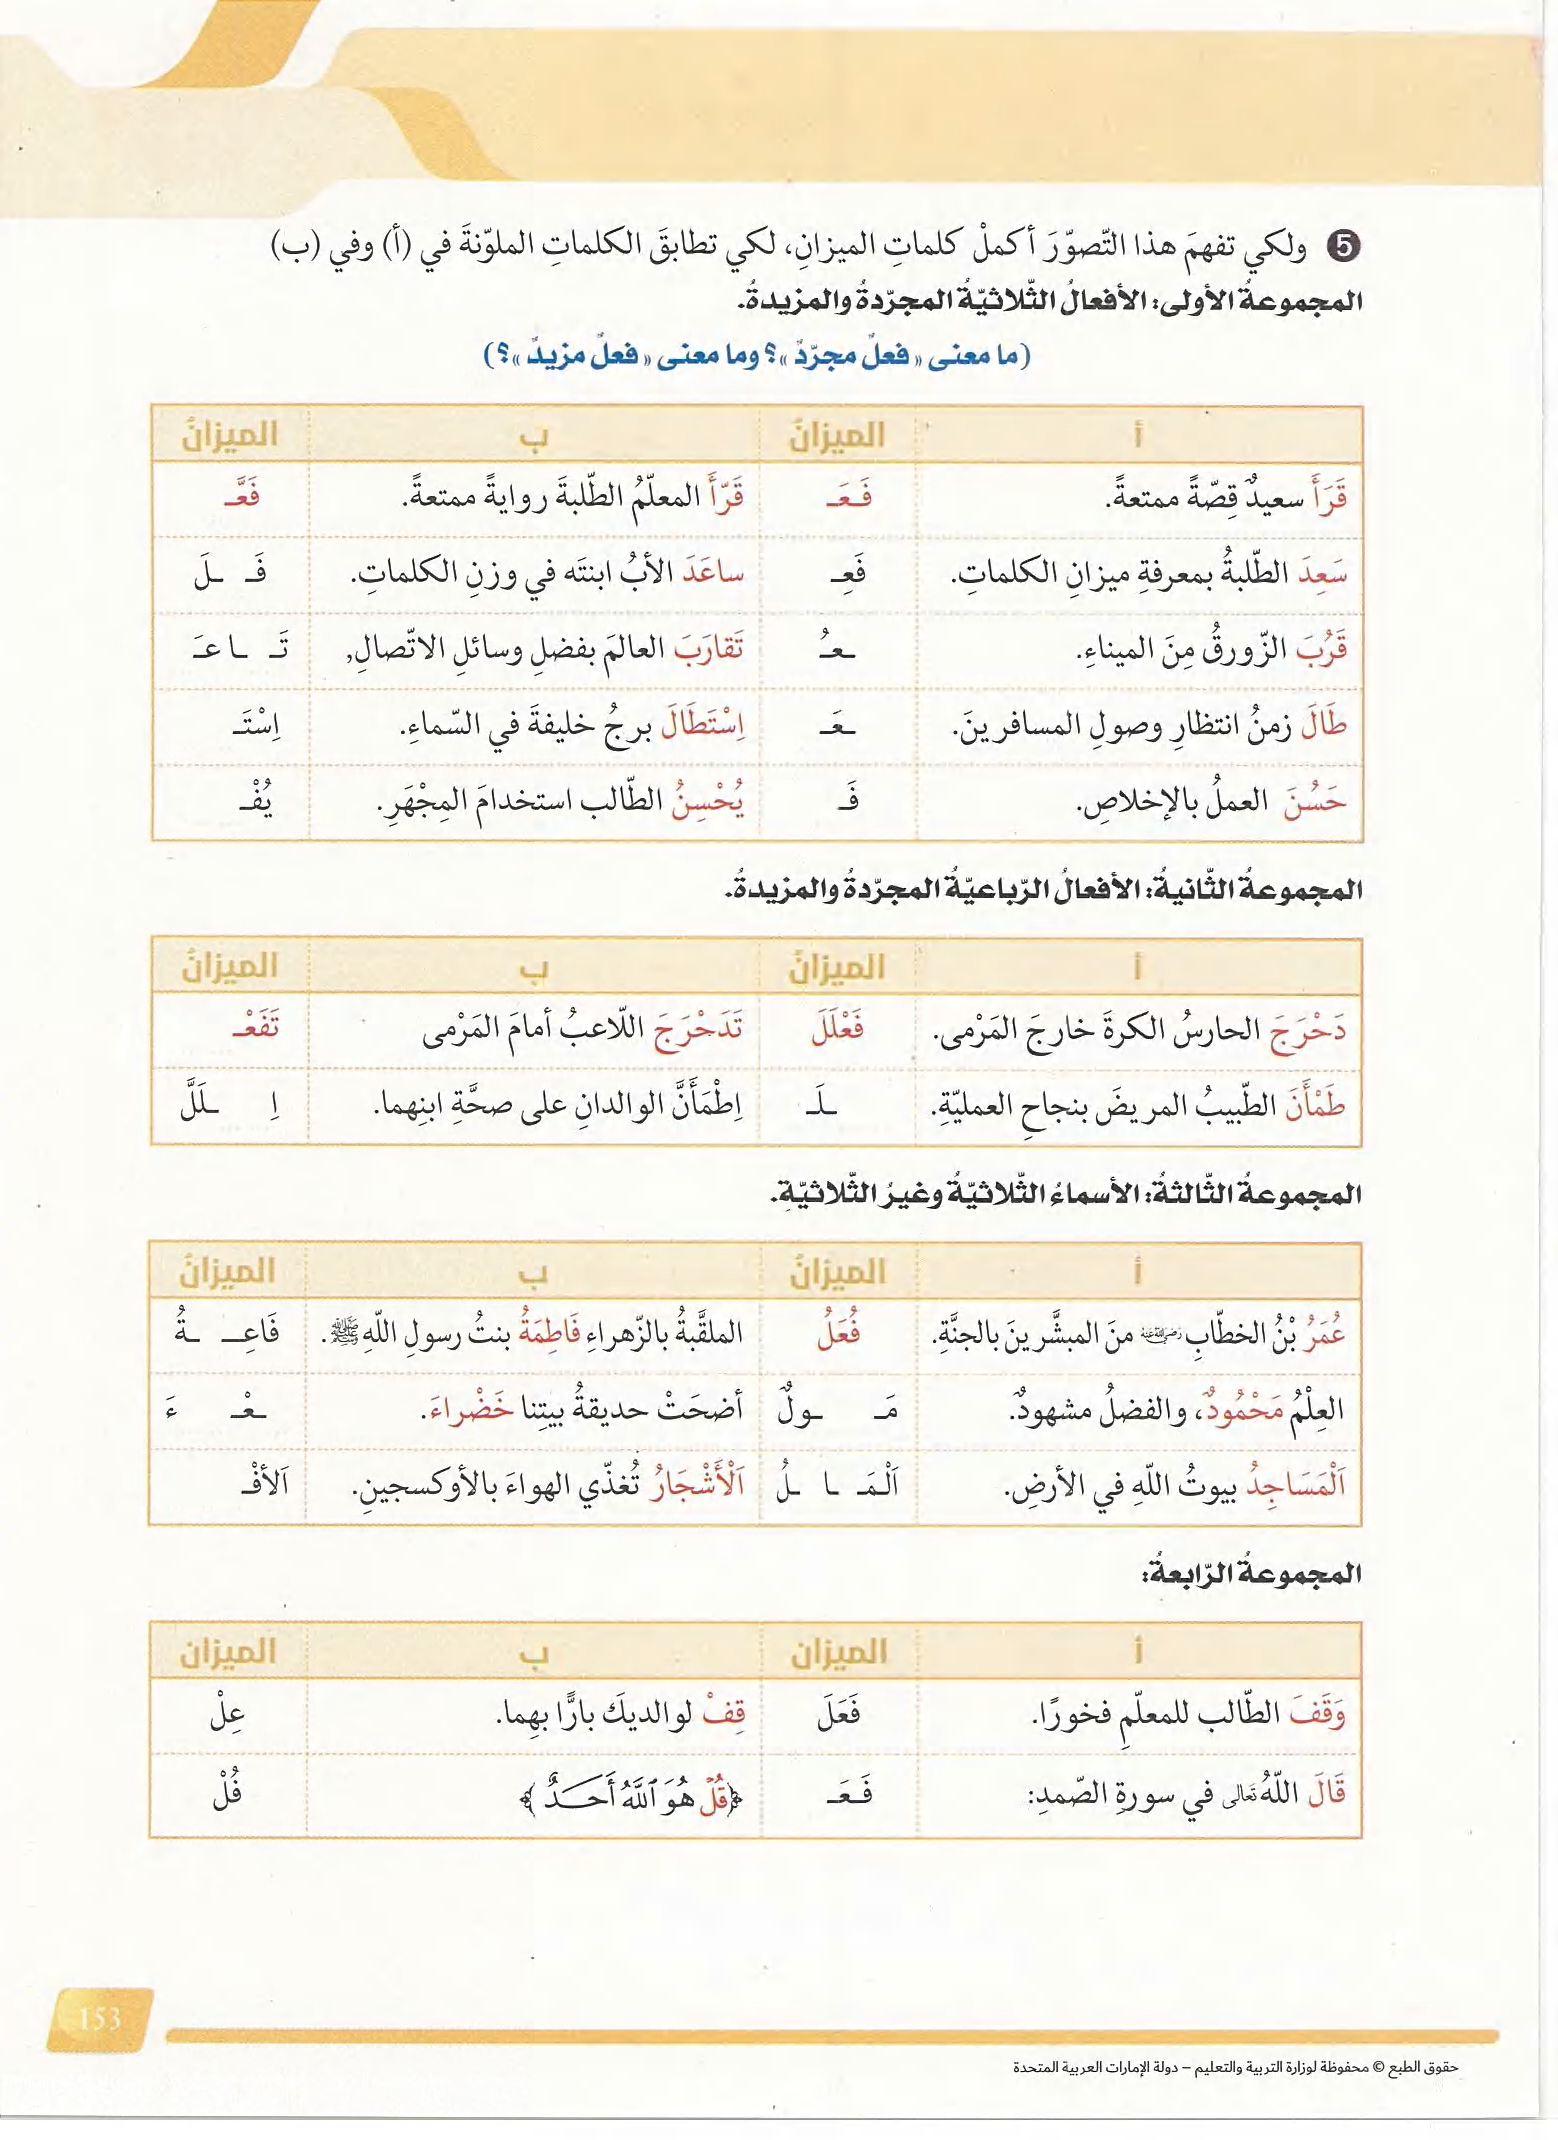 5 ولكي تفهمَ هذا التّصوّرَ أكملْ كلماتِ الميزانِ، لكي تطابقَ الكلماتِ الملوّنةَ في (أ) وفي (ب)
المجموعةُ الأولى: الأفعالُ الثّلاثيّةُ المجرّدةُ والمزيدةُ.
(ما معنى «فعلٌ مجرّدٌ»؟ وما معنى «فعلٌ مزيدٌ»؟)
أ الميزانُ ب الميزانُ
قَرَأَ سعيدٌ قِصّةً ممتعةً. فَـعَـ قَرّأَ المعلّمُ الطّلبةَ روايةً ممتعةً. فَعَّـ
سَعِدَ الطّلبةُ بمعرفةِ ميزانِ الكلماتِ. فَعِـ ساعَدَ الأبُ ابنتَه في وزنِ الكلماتِ. فَـ ـلَ
قَرُبَ الزّورقُ مِنَ الميناءِ. ـعـُ تَقارَبَ العالمَ بفضلِ وسائلِ الاتّصالِ, تَـ ـا عـَ
طَالَ زمنُ انتظارِ وصولِ المسافرينَ. ـعَـ اِسْتَطَالَ برجُ خليفةَ في السّماءِ. اِسْتَـ
حَسُنَ العملُ بالإخلاصِ. فَـ يُحْسِنُ الطّالب استخدامَ المِجْهَرِ. يُفْـ
المجموعةُ الثّانيةُ: الأفعالُ الرّباعيّةُ المجرّدةُ والمزيدةُ.
أ الميزانُ ب الميزانُ
دَحْرَجَ الحارسُ الكرةَ خارجَ المَرْمى. فَعْلَلَ تَدَحْرَجَ اللّاعبُ أمامَ المَرْمى تَفَعْـ
طَمْأَنَ الطّبيبُ المريضَ بنجاحِ العمليّةِ. ـلَـ اِطْمَأَنَّ الوالدانِ على صحَّةِ ابنِهما. اِ ـلَلَّ
المجموعةُ الثّالثةُ: الأسماءُ الثّلاثيّةُ وغيرُ الثّلاثيّةِ.
أ الميزانُ ب الميزانُ
عُمَرُ بْنُ الخطّابِ رضي الله عنه منَ المبشَّرينَ بالجنَّةِ. فُعَلُ الملقَّبةُ بالزّهراءِ فَاطِمَةُ بنتُ رسولِ اللّهِ ﷺ. فَاعِـ ـةُ
العِلْمُ مَحْمُودٌ، والفضلُ مشهودٌ. مَـ ـولٌ أضحَتْ حديقةُ بيتِنا خَضْراءَ. ـعْـ ءَ
اَلْمَسَاجِدُ بيوتُ اللّهِ في الأرضِ. اَلْمَـ ـا ـلُ اَلْأَشْجَارُ تُغذّي الهواءَ بالأوكسجينِ. اَلأفْـ
المجموعةُ الرّابعةُ:
أ الميزان ب الميزان
وَقَفَ الطّالب للمعلّمِ فخورًا. فَعَلَ قِفْ لوالديكَ بارًّا بهِما. عِلْ
قَالَ اللّهُ تعالى في سورةِ الصّمدِ: فَـعَـ ﴿قُلْ هُوَ ٱللَّهُ أَحَدٌ﴾ فُلْ
153
حقوق الطبع © محفوظة لوزارة التربية والتعليم – دولة الإمارات العربية المتحدة